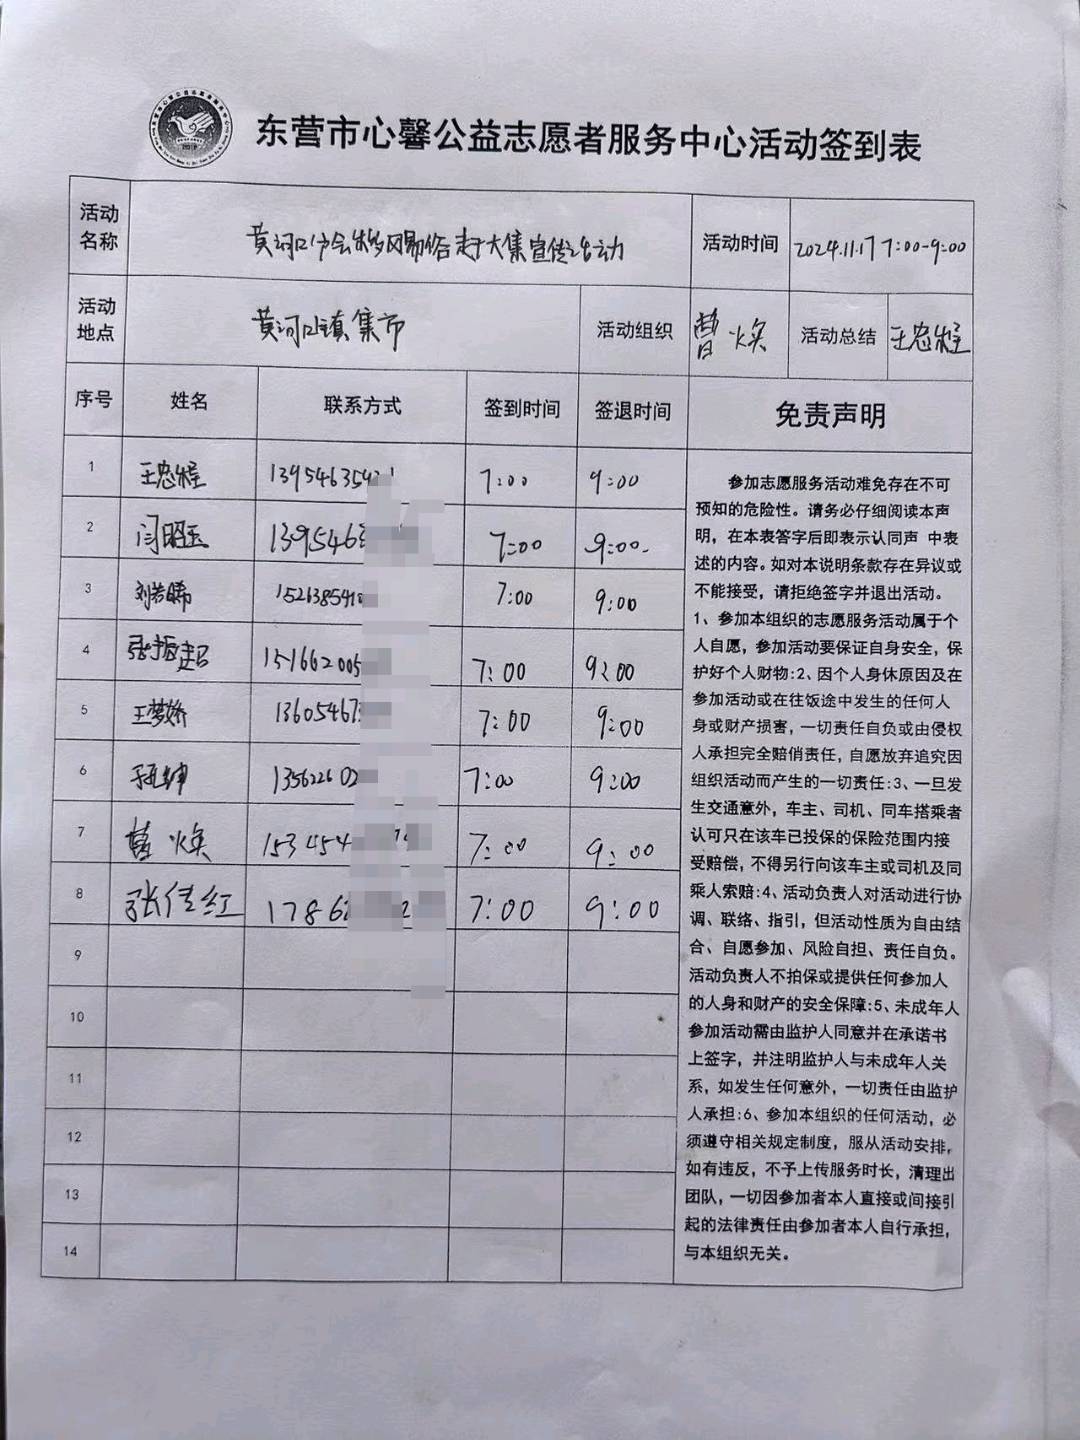 东营市心馨公益志愿者服务中心活动签到表
活动名称 黄河口分会移风易俗赶大集宣传活动 活动时间 2024.11.17 7:00-9:00
活动地点 黄河口镇集市 活动组织 曹焕 活动总结 王忠程
序号 姓名 联系方式 签到时间 签退时间 免责声明
1 王忠程 139546354 7:00 9:00
2 闫昭玉 1395463 7:00 9:00
3 152638541 7:00 9:00
4 张振超 151662005 7:00 9:00
5 王梦娇 13605467 7:00 9:00
6 135622602 7:00 9:00
7 曹焕 153454 7:00 9:00
8 张佳红 1786 7:00 9:00
9
10
11
12
13
14
参加志愿服务活动难免存在不可
预知的危险性。请务必仔细阅读本声
明，在本表签字后即表示认同声 中表
述的内容。如对本说明条款存在异议或
不能接受，请拒绝签字并退出活动。
1、参加本组织的志愿服务活动属于个
人自愿，参加活动要保证自身安全，保
护好个人财物:2、因个人身休原因及在
参加活动或在往饭途中发生的任何人
身或财产损害，一切责任自负或由侵权
人承担完全赔俏责任，自愿放弃追究因
组织活动而产生的一切责任:3、一旦发
生交通意外，车主、司机、同车搭乘者
认可只在该车已投保的保险范围内接
受赔偿，不得另行向该车主或司机及同
乘人索赔:4、活动负责人对活动进行协
调、联络、指引，但活动性质为自由结
合、自愿参加、风险自担、责任自负。
活动负责人不拍保或提供任何参加人
的人身和财产的安全保障:5、未成年人
参加活动需由监护人同意并在承诺书
上签字，并注明监护人与未成年人关
系，如发生任何意外，一切责任由监护
人承担:6、参加本组织的任何活动，必
须遵守相关规定制度，服从活动安排，
如有违反，不予上传服务时长，清理出
团队，一切因参加者本人直接或间接引
起的法律责任由参加者本人自行承担，
与本组织无关。